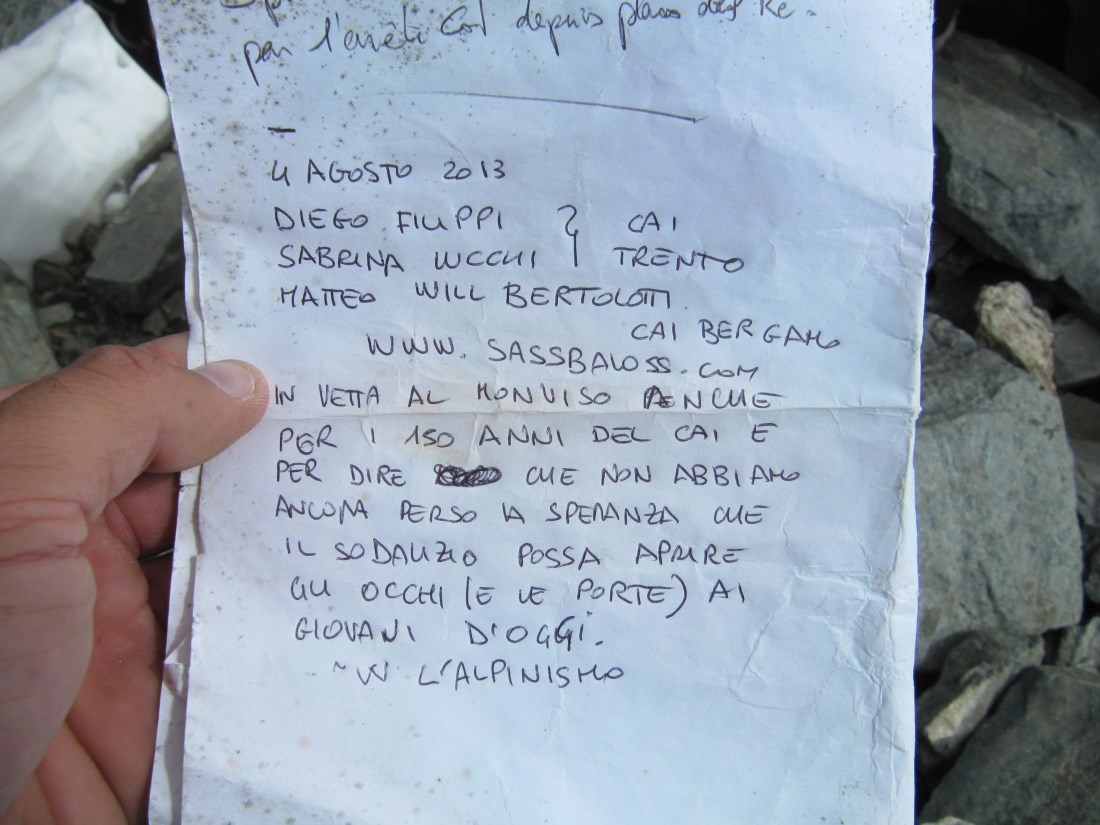 par l'arête Est depuis plan del Re.
4 AGOSTO 2013
DIEGO FILIPPI } CAI
SABRINA LUCCHI TRENTO
MATTEO WILL BERTOLOTTI
CAI BERGAMO
WWW.SASSBALOSS.COM
IN VETTA AL MONVISO ANCHE
PER I 150 ANNI DEL CAI E
PER DIRE CHE NON ABBIAMO
ANCORA PERSO LA SPERANZA CHE
IL SODALIZIO POSSA APRIRE
GLI OCCHI (E LE PORTE) AI
GIOVANI D'OGGI.
~ W L'ALPINISMO